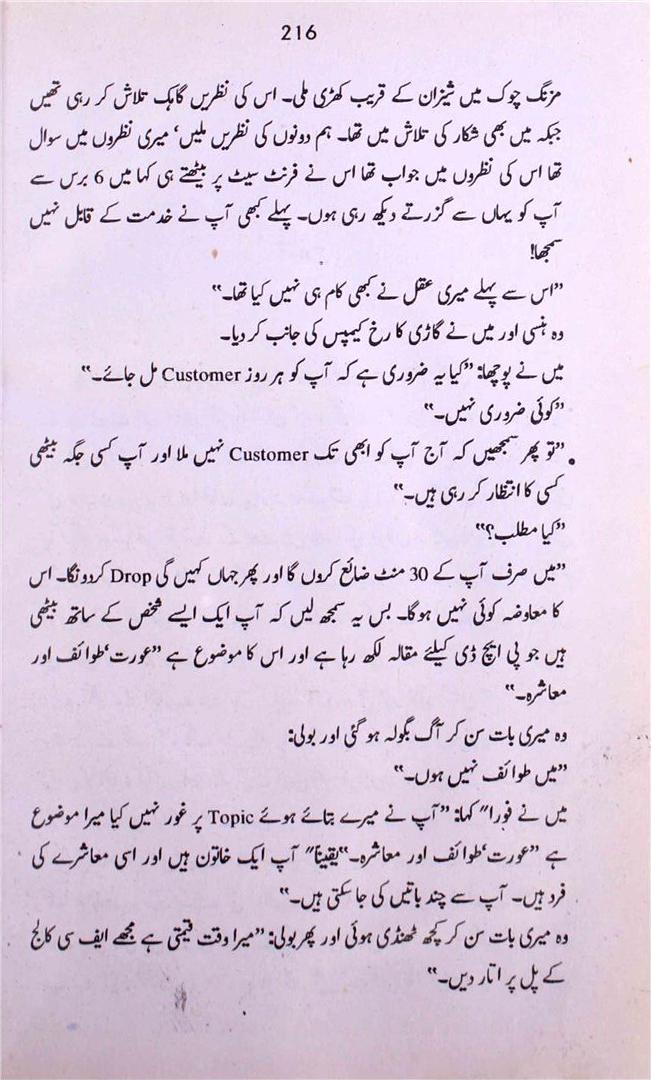 216
مزنگ چوک میں شیزان کے قریب کھڑی ملی۔ اس کی نظریں گاہک تلاش کر رہی تھیں
جبکہ میں بھی شکار کی تلاش میں تھا۔ ہم دونوں کی نظریں ملیں‘ میری نظروں میں سوال
تھا اس کی نظروں میں جواب تھا اس نے فرنٹ سیٹ پر بیٹھتے ہی کہا میں 6 برس سے
آپ کو یہاں سے گزرتے دیکھ رہی ہوں۔ پہلے کبھی آپ نے خدمت کے قابل نہیں
سمجھا!
”اس سے پہلے میری عقل نے کبھی کام ہی نہیں کیا تھا۔“
وہ ہنسی اور میں نے گاڑی کا رخ کیمپس کی جانب کر دیا۔
میں نے پوچھا: ”کیا یہ ضروری ہے کہ آپ کو ہر روز Customer مل جائے۔“
”کوئی ضروری نہیں۔“
”تو پھر سمجھیں کہ آج آپ کو ابھی تک Customer نہیں ملا اور آپ کسی جگہ بیٹھی
کسی کا انتظار کر رہی ہیں۔“
”کیا مطلب؟“
”میں صرف آپ کے 30 منٹ ضائع کروں گا اور پھر جہاں کہیں گی Drop کردونگا۔ اس
کا معاوضہ کوئی نہیں ہوگا۔ بس یہ سمجھ لیں کہ آپ ایک ایسے شخص کے ساتھ بیٹھی
ہیں جو پی ایچ ڈی کیلئے مقالہ لکھ رہا ہے اور اس کا موضوع ہے ”عورت‘ طوائف اور
معاشرہ۔“
وہ میری بات سن کر آگ بگولہ ہو گئی اور بولی:
”میں طوائف نہیں ہوں۔“
میں نے فورا“ کہا: ”آپ نے میرے بتائے ہوئے Topic پر غور نہیں کیا میرا موضوع
ہے ”عورت‘ طوائف اور معاشرہ۔“ یقیناً“ آپ ایک خاتون ہیں اور اسی معاشرے کی
فرد ہیں۔ آپ سے چند باتیں کی جا سکتی ہیں۔“
وہ میری بات سن کر کچھ ٹھنڈی ہوئی اور پھر بولی: ”میرا وقت قیمتی ہے مجھے ایف سی کالج
کے پل پر اتار دیں۔“